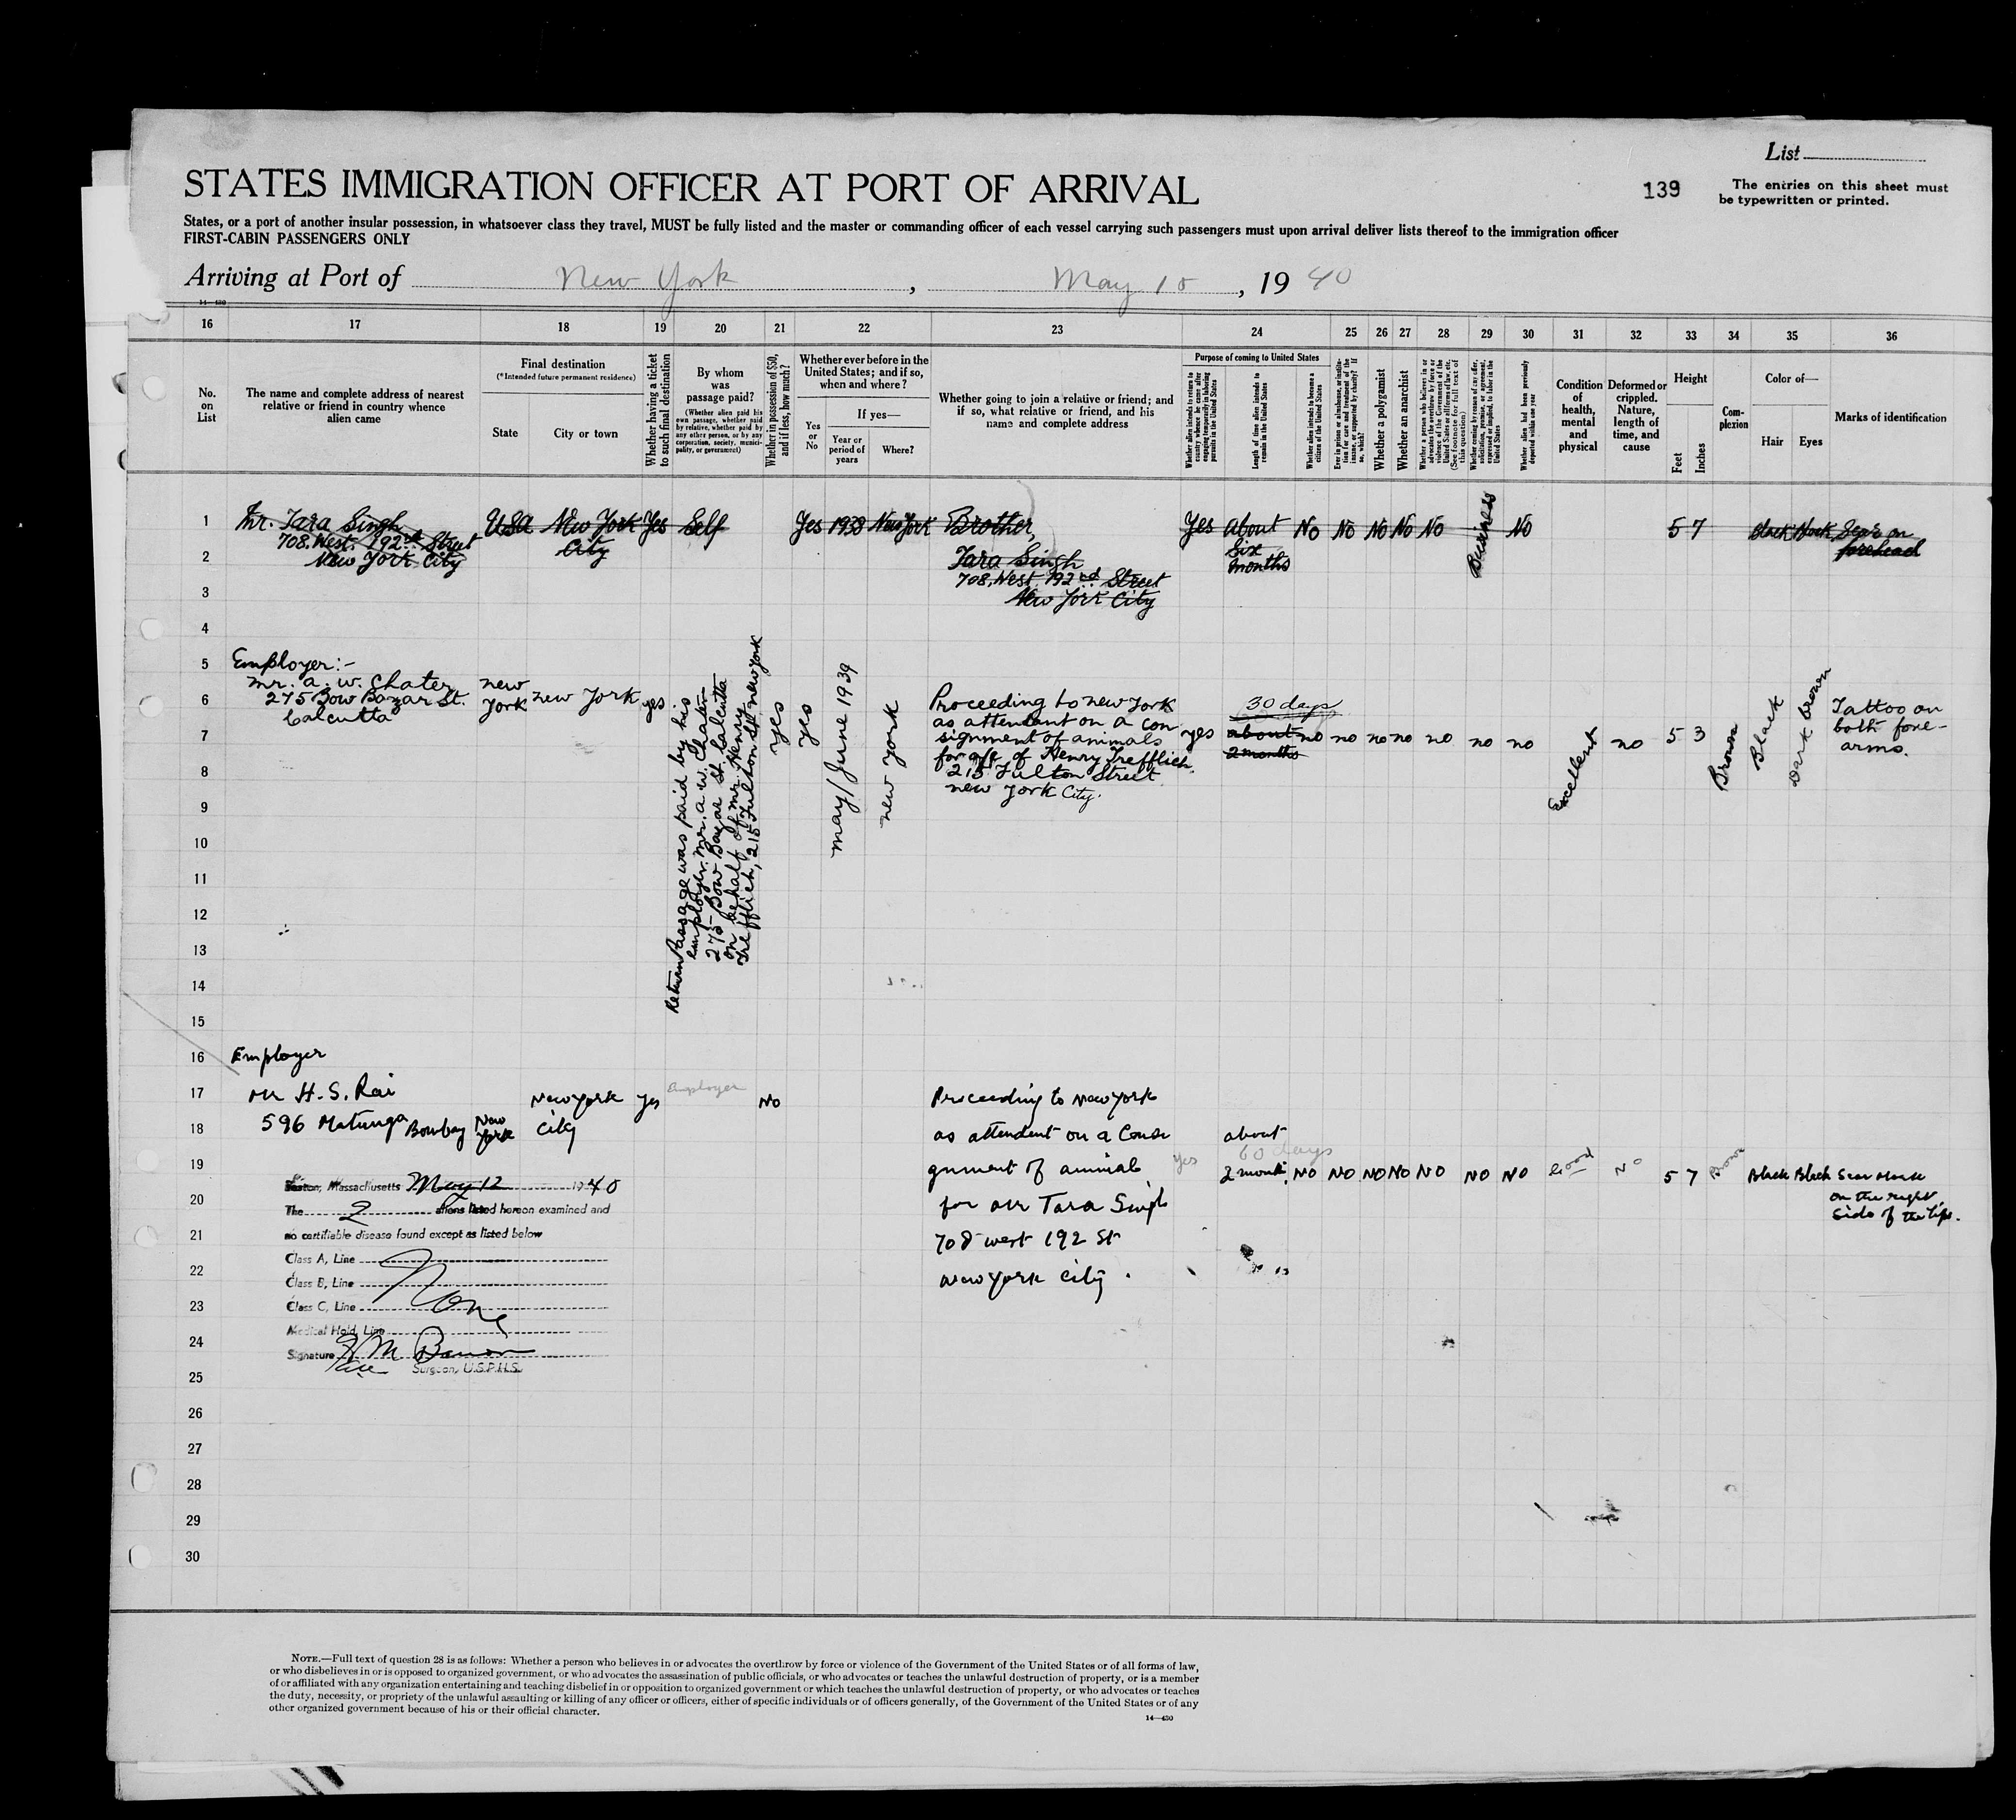 List
STATES IMMIGRATION OFFICER AT PORT OF ARRIVAL
139
The entries on this sheet must
be typewritten or printed.
States, or a port of another insular possession, in whatsoever class they travel, MUST be fully listed and the master or commanding officer of each vessel carrying such passengers must upon arrival deliver lists thereof to the immigration officer
FIRST-CABIN PASSENGERS ONLY
Arriving at Port of New York, May 15, 1940
14—430
16 17 18 19 20 21 22 23 24 25 26 27 28 29 30 31 32 33 34 35 36
No. on List
The name and complete address of nearest relative or friend in country whence alien came
Final destination
(*Intended future permanent residence)
State
City or town
Whether having a ticket to such final destination
By whom was passage paid?
(Whether alien paid his own passage, whether paid by relative, whether paid by any other person, or by any corporation, society, municipality, or government)
Whether in possession of $50, and if less, how much?
Whether ever before in the United States; and if so, when and where?
Yes or No
If yes—
Year or period of years
Where?
Whether going to join a relative or friend; and if so, what relative or friend, and his name and complete address
Purpose of coming to United States
Whether alien intends to return to country whence he came after engaging temporarily in laboring pursuits in the United States
Length of time alien intends to remain in the United States
Whether alien intends to become a citizen of the United States
Ever in prison or almshouse, or institution for care and treatment of the insane, or supported by charity? If so, which?
Whether a polygamist
Whether an anarchist
Whether a person who believes in or advocates the overthrow by force or violence of the Government of the United States or all forms of law, etc. (See footnote for full text of this question)
Whether coming by reason of any offer, solicitation, promise, or agreement, expressed or implied, to labor in the United States
Whether alien had been previously deported within one year
Condition of health, mental and physical
Deformed or crippled. Nature, length of time, and cause
Height
Feet
Inches
Complexion
Color of—
Hair
Eyes
Marks of identification
1 Mr. Tara Singh USA New York Yes Self Yes 1938 New York Brother, Yes about No No No No No Business No 5 7 Black Black Scar on
708. West. 192nd Street City Six forehead
2 New York City Tara Singh months
708, West 192nd Street
3 New York City
4
5 Employer:-
mr. a. w. Chater
6 275 Bow Bazar St. new York new York yes
Calcutta
Return Passage was paid by his
employer. mr. a. w. Chater
275-Bow Bazar St. Calcutta
on behalf of mr. Henry
Trefflich, 215 Fulton St. new York
yes yes may/June 1939 new york
Proceeding to new York
as attendant on a con
7 signment of animals
for a/c of Henry Trefflich
8 215 Fulton Street
new York City.
yes 30 days
about
2 months
no no no no no no no Excellent no 5 3 Brown Black Dark brown
Tattoo on
both fore-
arms.
9
10
11
12
13
14
15
16 Employer
17 Mr H. S. Rai New York yes Employer No Proceeding to New York
18 596 Matunga Bombay New York City as attendent on a Consi about
19 gnment of animals yes 60 days
2 month. No No No No No No No Good No 5 7 Brown Black Black Scar Mark
on the right
side of the lips.
Boston, Massachusetts May 12 1940
20 The 2 aliens listed hereon examined and for Mr Tara Singh
21 no certifiable disease found except as listed below 708 west 192 St
Class A, Line
22 Class B, Line New York City.
None
23 Class C, Line
Medical Hold, Line
24 Signature
Surgeon, U.S.P.H.S.
25
26
27
28
29
30
NOTE.—Full text of question 28 is as follows: Whether a person who believes in or advocates the overthrow by force or violence of the Government of the United States or of all forms of law,
or who disbelieves in or is opposed to organized government, or who advocates the assassination of public officials, or who advocates or teaches the unlawful destruction of property, or is a member
of or affiliated with any organization entertaining and teaching disbelief in or opposition to organized government or which teaches the unlawful destruction of property, or who advocates or teaches
the duty, necessity, or propriety of the unlawful assaulting or killing of any officer or officers, either of specific individuals or of officers generally, of the Government of the United States or of any
other organized government because of his or their official character.
14—430